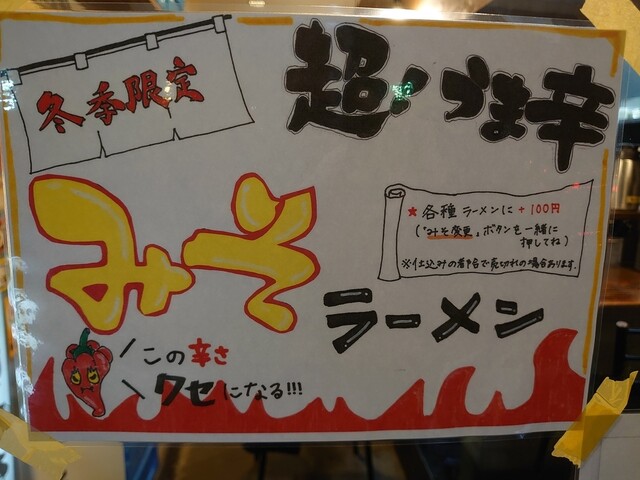 冬季限定
超!うま辛
みそ
ラーメン
★各種ラーメンに+100円
(「みそ変更」ボタンを一緒に
押してね)
※仕込みの都合で売切れの場合あります。
この辛さ
クセになる!!!